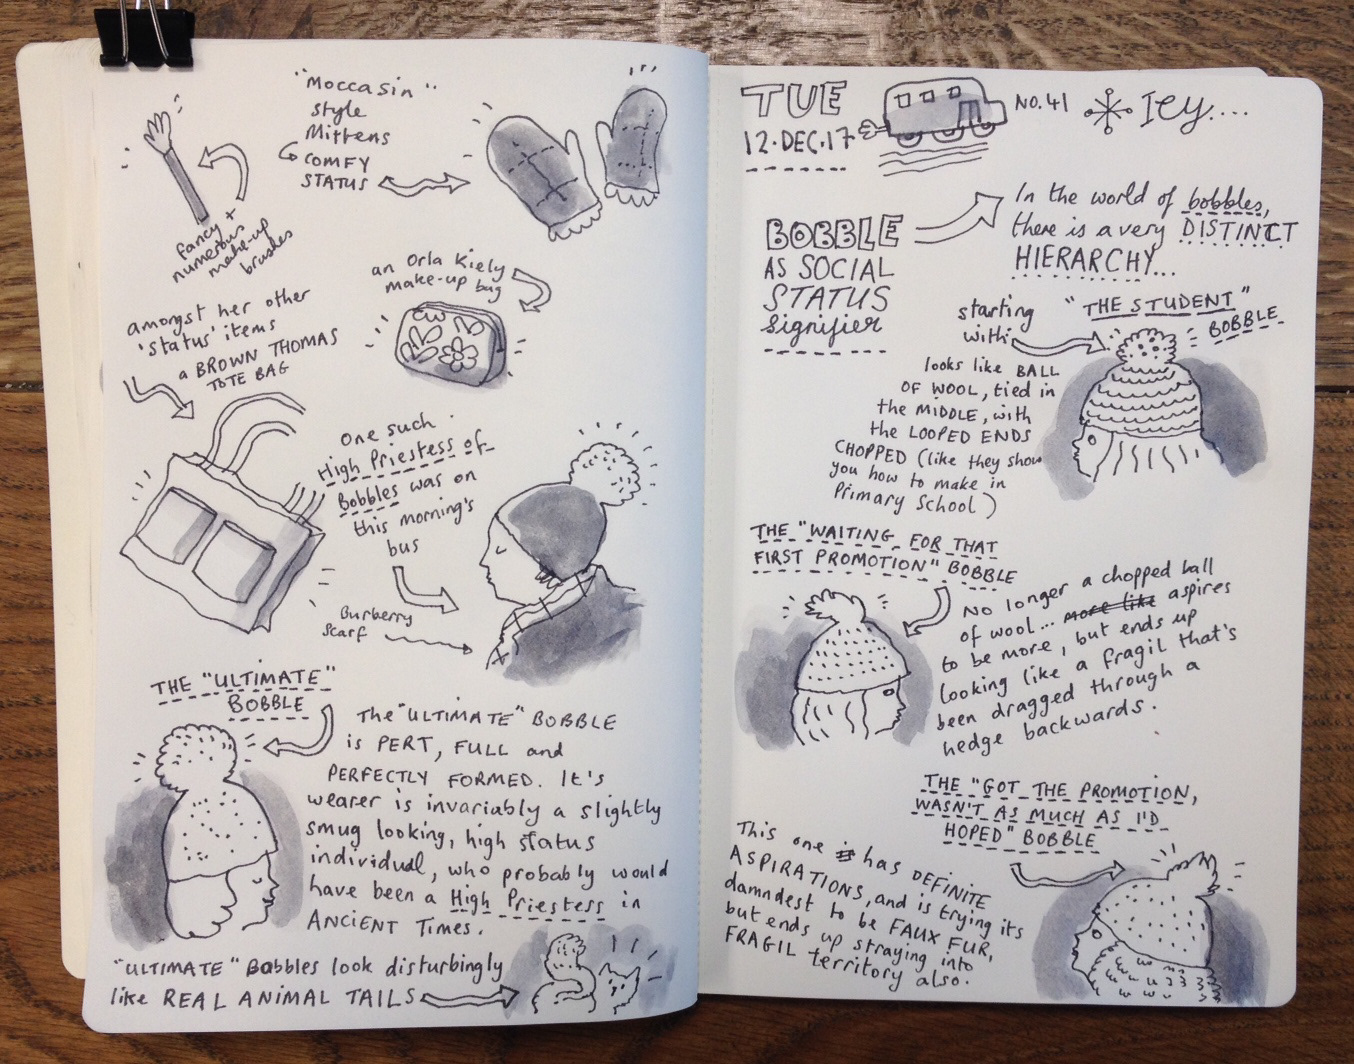 "Moccasin"
style
Mittens
COMFY
STATUS
fancy +
numerous
make-up
brushes
an Orla Kiely
make-up bag
amongst her other
'status' items
a BROWN THOMAS
TOTE BAG
One such
High Priestess of
Bobbles was on
this morning's
bus
Burberry
Scarf
THE "ULTIMATE"
BOBBLE
The "ULTIMATE" BOBBLE
is PERT, FULL and
PERFECTLY FORMED. It's
wearer is invariably a slightly
smug looking, high status
individual, who probably would
have been a High Priestess in
ANCIENT Times.
"ULTIMATE" Bobbles look disturbingly
like REAL ANIMAL TAILS
TUE
12.DEC.17
NO.41
Icy....
BOBBLE
AS SOCIAL
STATUS
Signifier
In the world of bobbles,
there is a very DISTINCT
HIERARCHY...
starting
with:
"THE STUDENT"
BOBBLE
looks like BALL
OF WOOL, tied in
the MIDDLE, with
the LOOPED ENDS
CHOPPED (like they show
you how to make in
Primary School)
THE "WAITING FOR THAT
FIRST PROMOTION" BOBBLE
No longer a chopped ball
of wool... more like aspires
to be more, but ends up
looking like a fragil that's
been dragged through a
hedge backwards.
THE "GOT THE PROMOTION,
WASN'T AS MUCH AS I'D
HOPED" BOBBLE
This one is has DEFINITE
ASPIRATIONS, and is trying its
damndest to be FAUX FUR,
but ends up straying into
FRAGIL territory also.